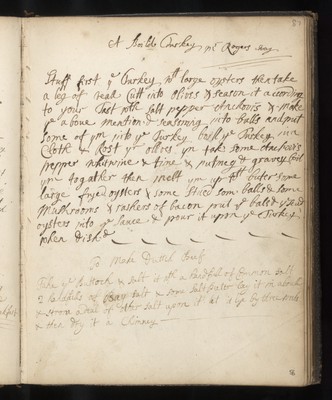 A Boild Turkey mr Rogers way
Stuff first ye Turkey wth large oysters then take
a leg of veal Cutt into Ollives & season it according
to your Tast with salt pepper anchovis & make
ye a boue mention'd seasoning into balls and putt
Some of ym into ye Turkey boyl ye Turkey in a
Cloth & Rost ye ollies ym take some anchovis
pepper whitwine & time & nutmeg & gravey boyl
ym together then melt ym up wth butter some
large fryed oysters & some sliced som balls & some
Mushrooms & rashers of bacon
oysters into ye Sauce & pour it upon ye Turkey
when dished
To Make Dutch Beef
Take ye Buttock & salt it wth a handful of Common Salt
2 handfuls of Bay salt & some Salt Peter lay it in
& throw a of other salt upon it let it lye by three weeks
& then dry it in Chimney